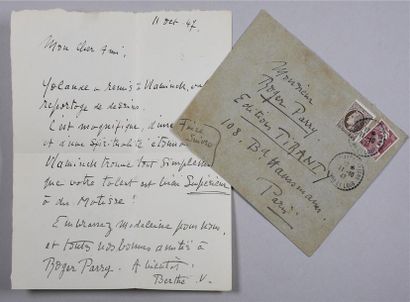 11 oct 47.
Mon cher Ami.
Yolande a remis à Vlaminck, un
reportage de dessins.
C'est magnifique, d'une
et d'une spiritualité
Vlaminck trouve tout simplement
que votre talent est bien Supérieur
à du Matisse!
Embrassez Madeleine pour nous,
et toutes nos bonnes amitiés à
Roger Parry. A bientôt.
Berthe V.
Monsieur
Roger Parry
Edition TIRANTY
108. Bd Haussmann.
Paris.
Faire Suivre